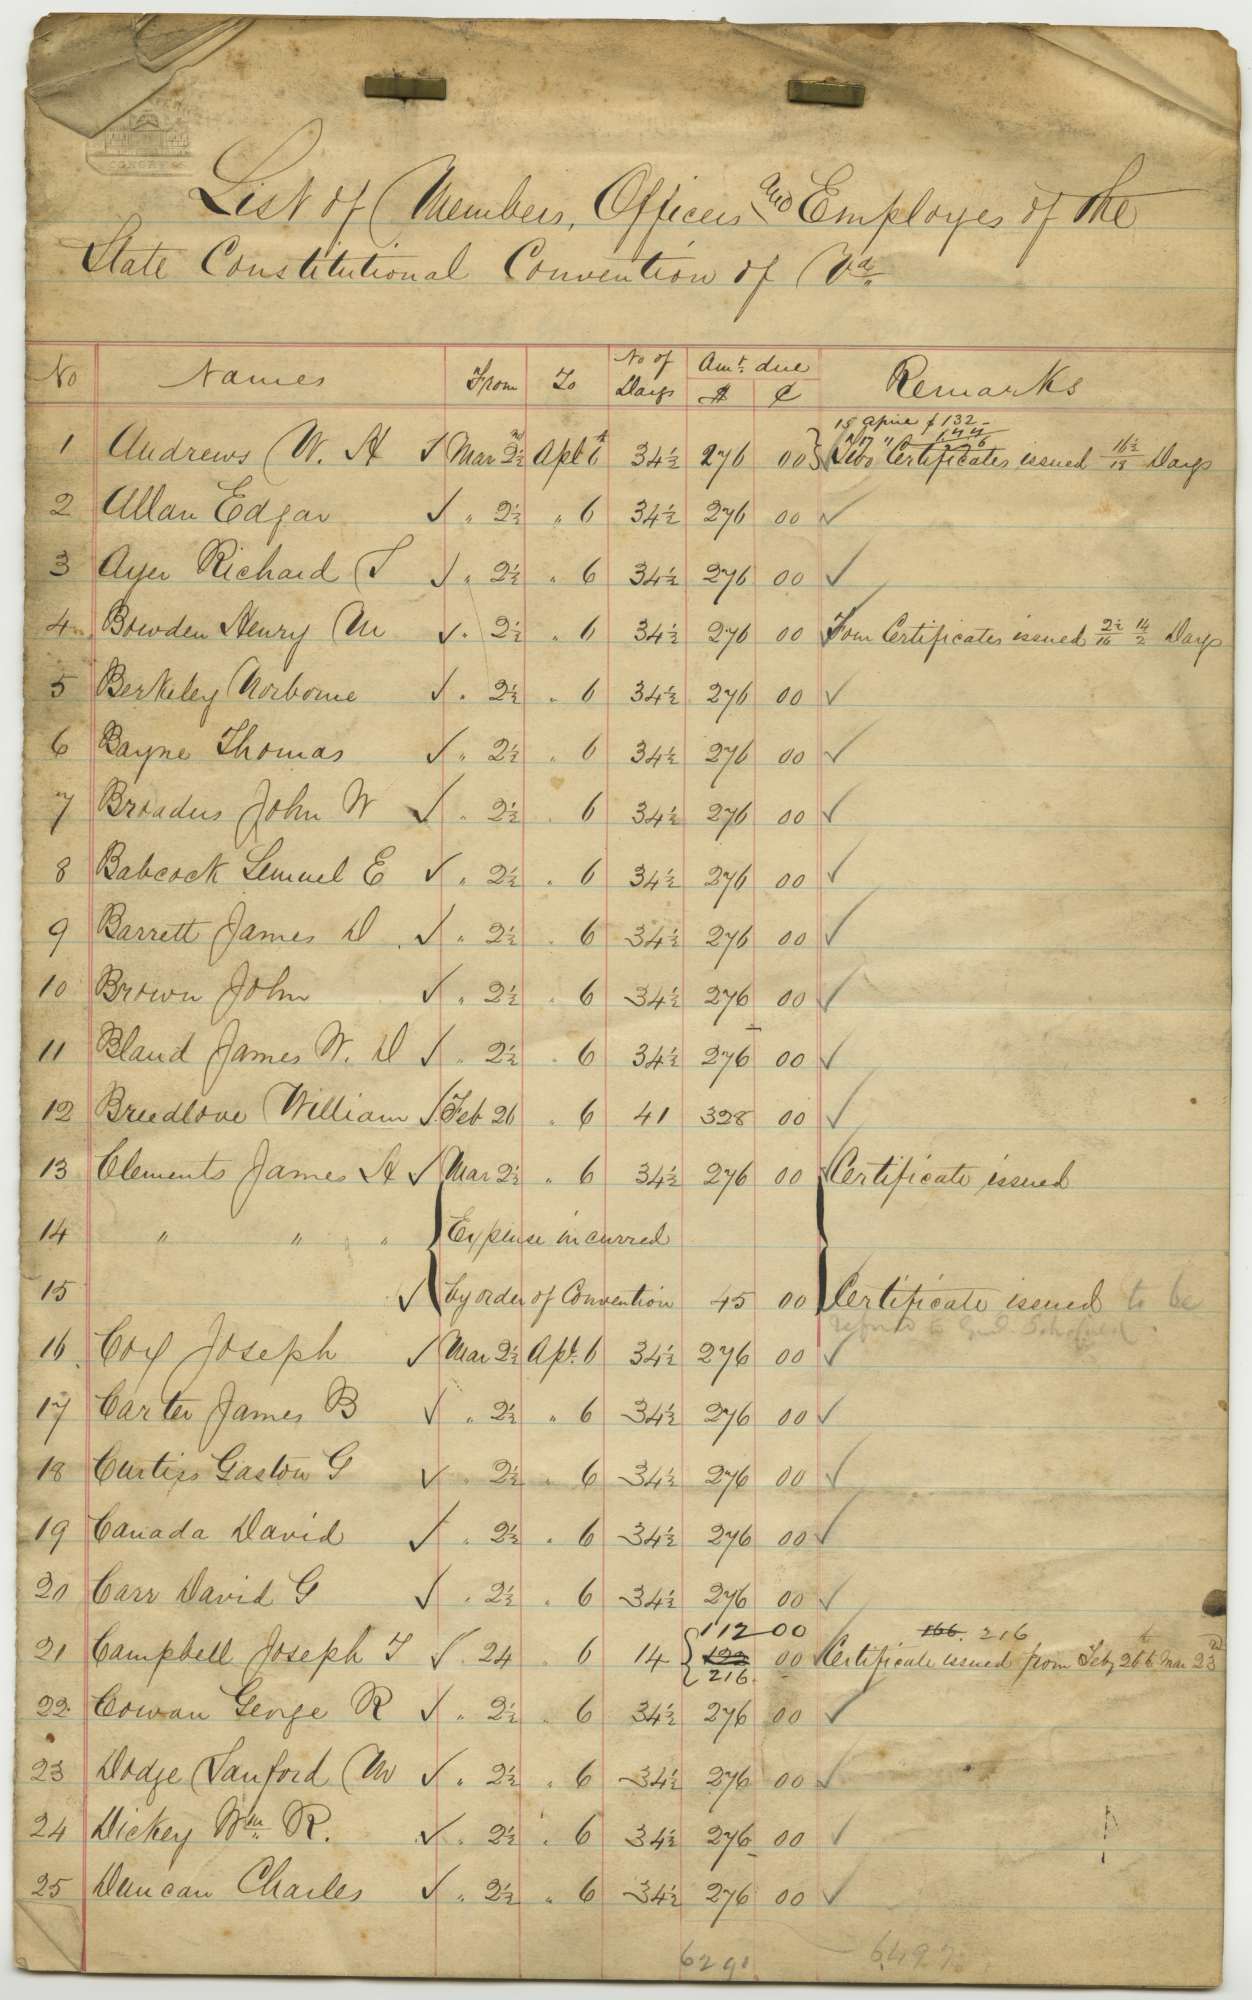 CONGRESS
List of Members, Officers and Employes of the
State Constitutional Convention of Va.
No Names From To No of Days Amt. due $ ¢ Remarks
15 April $ 132 -
" 17 " 144
276
1 Andrews W. H Mar 2½ Apl 6 34½ 276 00 Two Certificates issued 16½ 18 Days
2 Allan Edgar " 2½ " 6 34½ 276 00
3 Ayer Richard S " 2½ " 6 34½ 276 00
4 Bowden Henry M " 2½ " 6 34½ 276 00 Four Certificates issued 2½ 16 14 2 Days
5 Berkeley Norborne " 2½ " 6 34½ 276 00
6 Bayne Thomas " 2½ " 6 34½ 276 00
7 Broadus John W " 2½ " 6 34½ 276 00
8 Babcock Lemuel E " 2½ " 6 34½ 276 00
9 Barrett James D " 2½ " 6 34½ 276 00
10 Brown John " 2½ " 6 34½ 276 00
11 Bland James W. D " 2½ " 6 34½ 276 00
12 Breedlove William Feb 26 " 6 41 328 00
13 Clements James H Mar 2½ " 6 34½ 276 00 Certificate issued
14 " " " Expense incurred
15 by order of Convention 45 00 Certificate issued to be
refered to Genl. Schofield
16 Cox Joseph Mar 2½ Apl. 6 34½ 276 00
17 Carter James B " 2½ " 6 34½ 276 00
18 Curtiss Gaston G " 2½ " 6 34½ 276 00
19 Canada David " 2½ " 6 34½ 276 00
20 Carr David G " 2½ " 6 34½ 276 00
112 00 166. 216
21 Campbell Joseph T " 24 " 6 14 122 00 Certificate issued from Feby 26 to Mar 23d
216.
22 Cowan George R " 2½ " 6 34½ 276 00
23 Dodge Sanford M " 2½ " 6 34½ 276 00
24 Dickey Wm R. " 2½ " 6 34½ 276 00
25 Duncan Charles " 2½ " 6 34½ 276 00
6291 6497